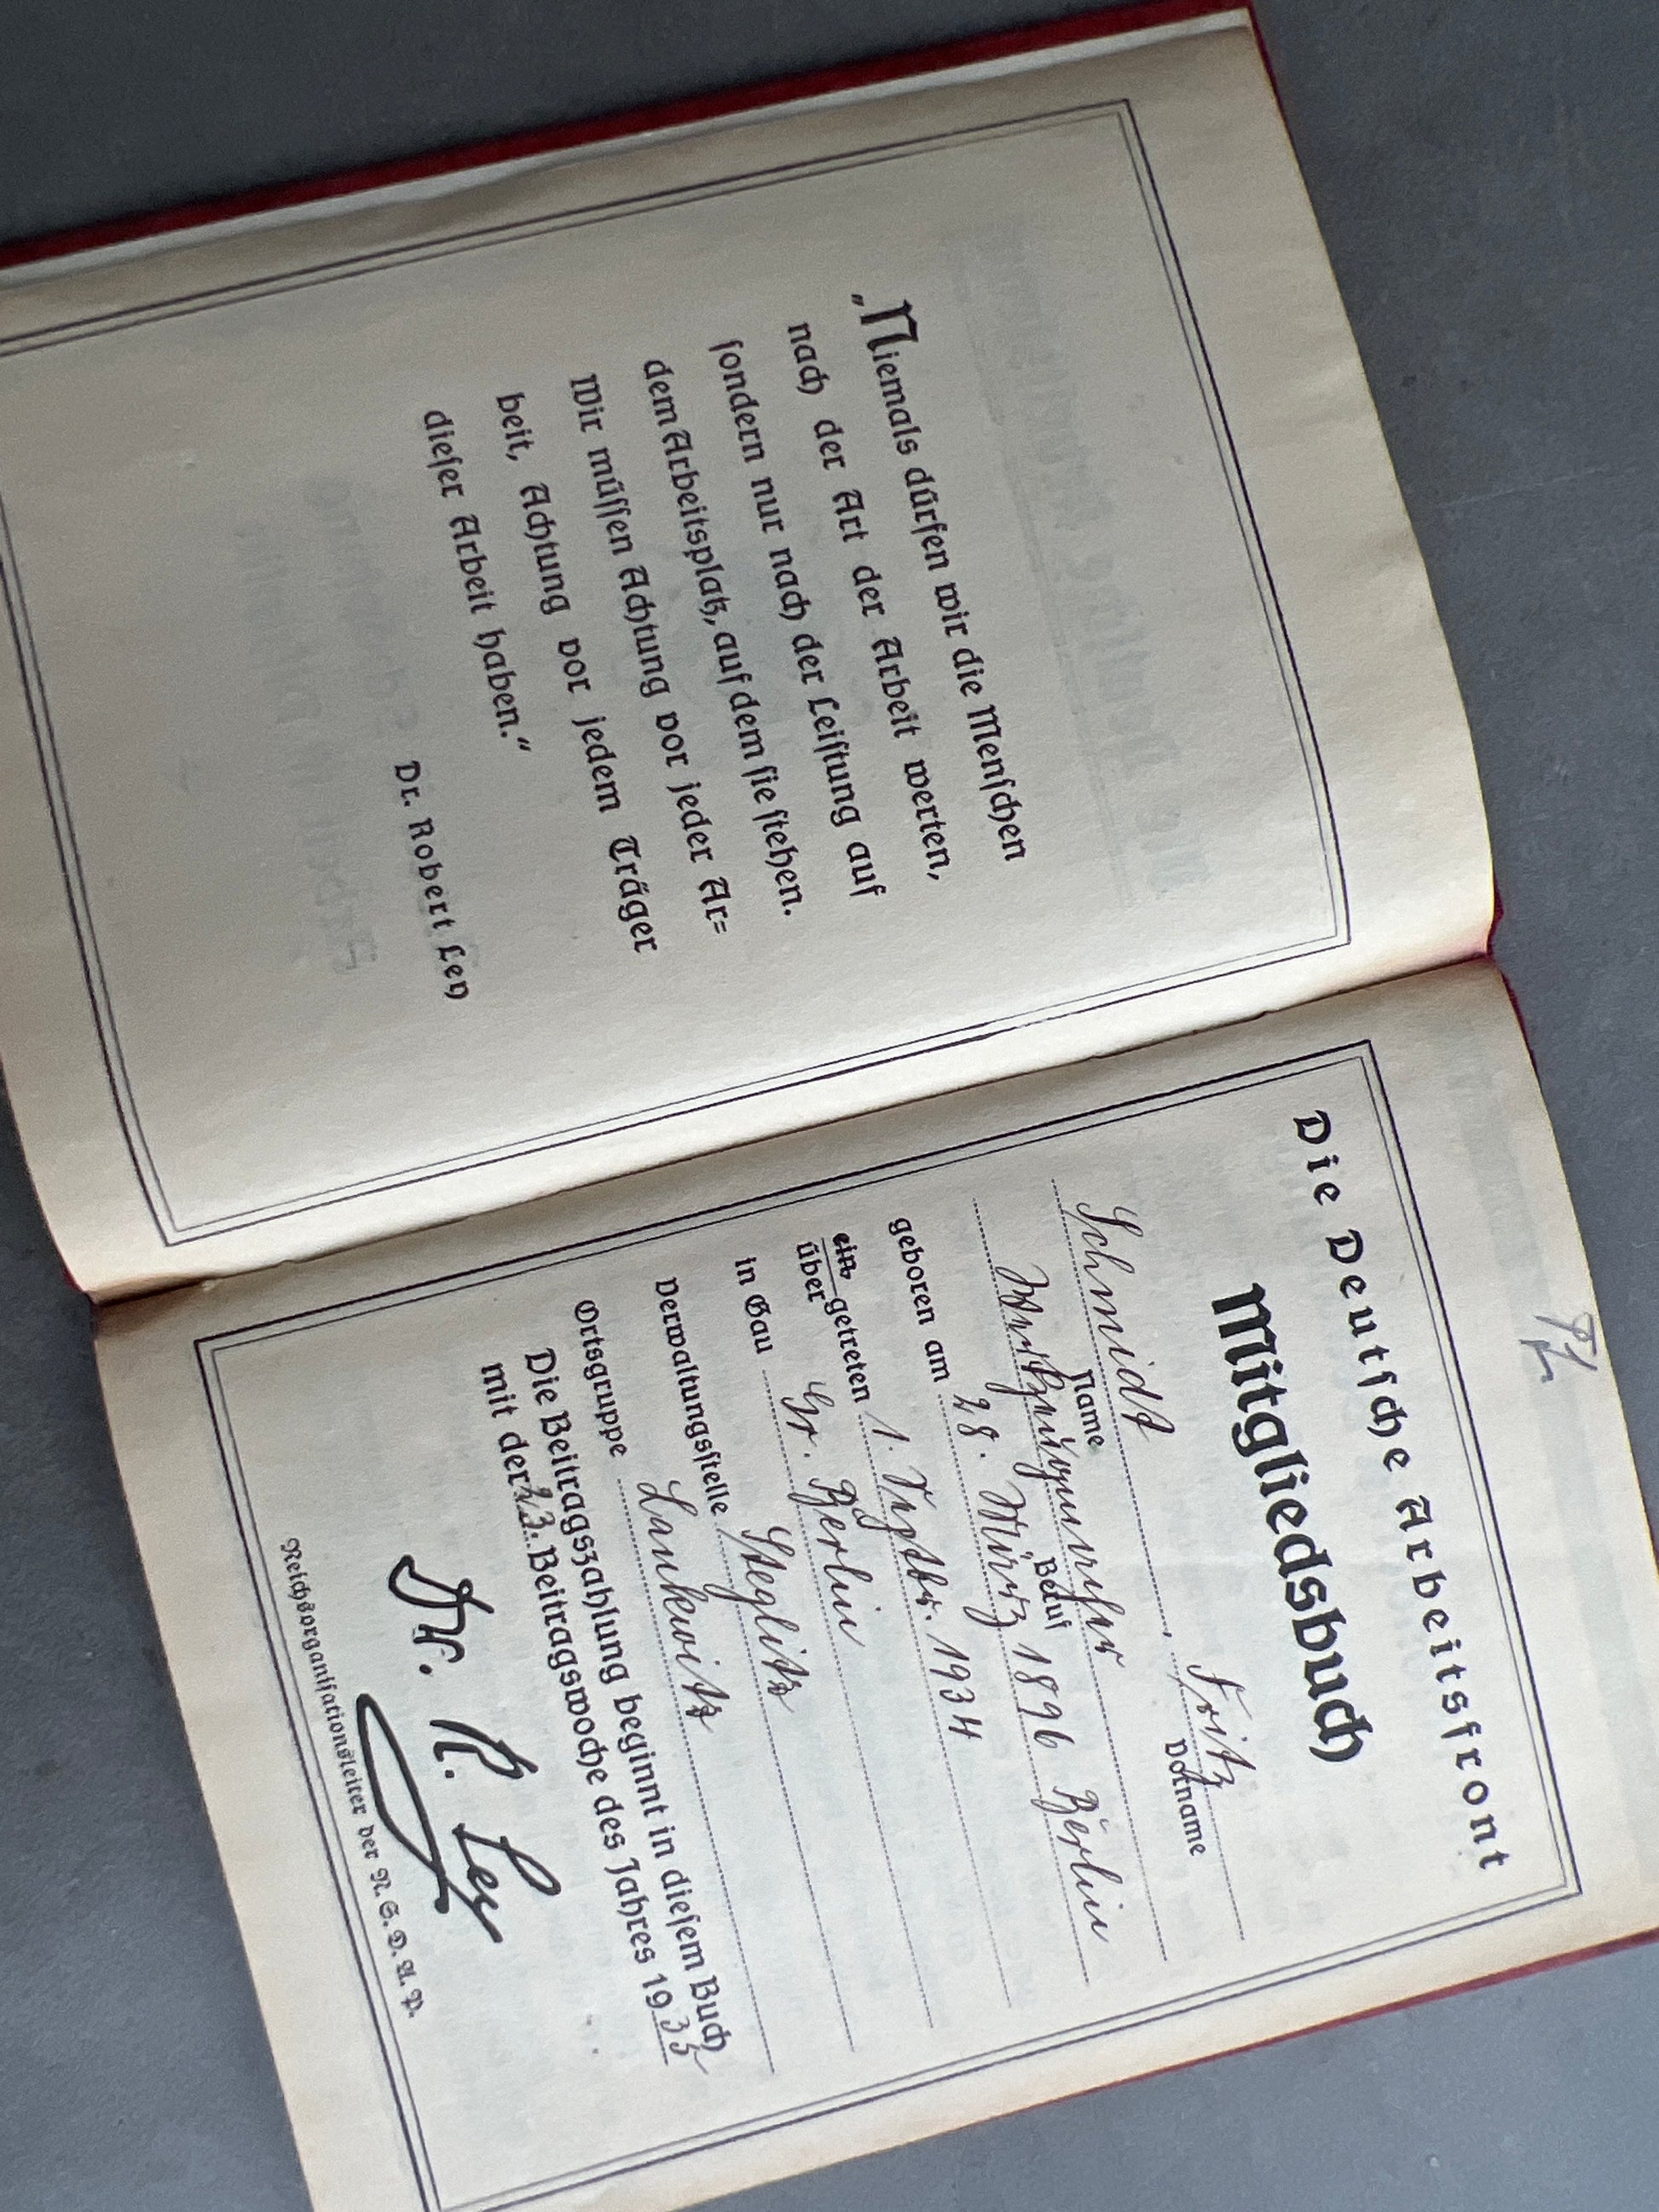 „Niemals dürfen wir die Menschen
nach der Art der Arbeit werten,
sondern nur nach der Leistung auf
dem Arbeitsplatz, auf dem sie stehen.
Wir müssen Achtung vor jeder Ar=
beit, Achtung vor jedem Träger
dieser Arbeit haben.“
Dr. Robert Ley
Die Deutsche Arbeitsfront
Mitgliedsbuch
Schmidt, Fritz
Name Vorname
Werkzeugmacher
Beruf
geboren am 28. März 1896 Berlin
ein
über getreten 1. Septbr. 1934
in Gau Gr. Berlin
Verwaltungsstelle Steglitz
Ortsgruppe Lankwitz
Die Beitragszahlung beginnt in diesem Buch
mit der 23. Beitragswoche des Jahres 1935
Dr. R. Ley
Reichsorganisationsleiter der N.S.D.A.P.